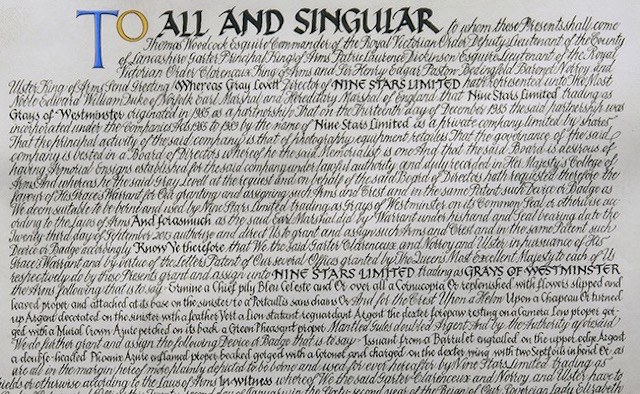 TO ALL AND SINGULAR to whom these Presents shall come
Thomas Woodcock Esquire Commander of the Royal Victorian Order Deputy Lieutenant of the County
of Lancashire Garter Principal King of Arms Patric Laurence Dickinson Esquire Lieutenant of the Royal
Victorian Order Clarenceux King of Arms and Sir Henry Edgar Paston Bedingfeld Baronet Norroy and
Ulster King of Arms Send Greeting Whereas Gray Levett Director of NINE STARS LIMITED hath represented unto The Most
Noble Edward William Duke of Norfolk Earl Marshal and Hereditary Marshal of England that Nine Stars Limited trading as
Grays of Westminster originated in 1985 as a partnership That on the Thirteenth day of December 1985 the said partnership was
incorporated under the Companies Acts 1985 to 1989 by the name of Nine Stars Limited as a private company limited by shares
That the principal activity of the said company is that of photography equipment retailers That the governance of the said
company is vested in a Board of Directors whereof he the said Memorialist is one And that the said Board is desirous of
having Armorial Ensigns established for the said company under lawful authority and duly recorded in Her Majesty's College of
Arms And whereas he the said Gray Levett at the request and on behalf of the said Board of Directors hath requested therefore the
favour of His Grace's Warrant for Our granting and assigning such Arms and Crest and in the same Patent such Device or Badge as
We deem suitable to be borne and used by Nine Stars Limited trading as Grays of Westminster on its Common Seal or otherwise acc
ording to the Laws of Arms And forasmuch as the said Earl Marshal did by Warrant under his hand and Seal bearing date the
Twenty third day of February 2013 authorise and direct Us to grant and assign such Arms and Crest and in the same Patent such
Device or Badge accordingly Know Ye therefore that We the said Garter Clarenceux and Norroy and Ulster in pursuance of His
Grace's Warrant and by virtue of the Letters Patent of Our several Offices granted by The Queen's Most Excellent Majesty to each of Us
respectively do by these Presents grant and assign unto NINE STARS LIMITED trading as GRAYS OF WESTMINSTER
the Arms following that is to say:- Ermine a Chief pily Bleu Celeste and Or over all a Cornucopia Or replenished with flowers slipped and
leaved proper and attached at its base on the sinister to a Portcullis sans chains Or And for the Crest Upon a Helm Upon a Chapeau Or turned
up Argent decorated on the sinister with a feather Vert a Lion statant reguardant Argent the dexter forepaw resting on a Camera Lens proper gor
ged with a Mural Crown Azure perched on its back a Green Pheasant proper Mantled Gules doubled Argent And by the Authority aforesaid
We do further grant and assign the following Device or Badge that is to say:- Issuant from a Barrulet engrailed on the upper edge Argent
a double-headed Phoenix Azure inflamed proper beaked gorged with a Coronet and charged on the dexter wing with two Septfoils in bend Or as
are all in the margin hereof more plainly depicted to be borne and used for ever hereafter by Nine Stars Limited trading as
or otherwise according to the Laws of Arms In witness whereof We the said Garter Clarenceux and Norroy and Ulster have to
day of January in the Sixty-second year of the Reign of Our Sovereign Lady Elizabeth